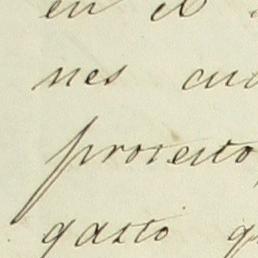 en el
nes cul
proyecto
gasto q